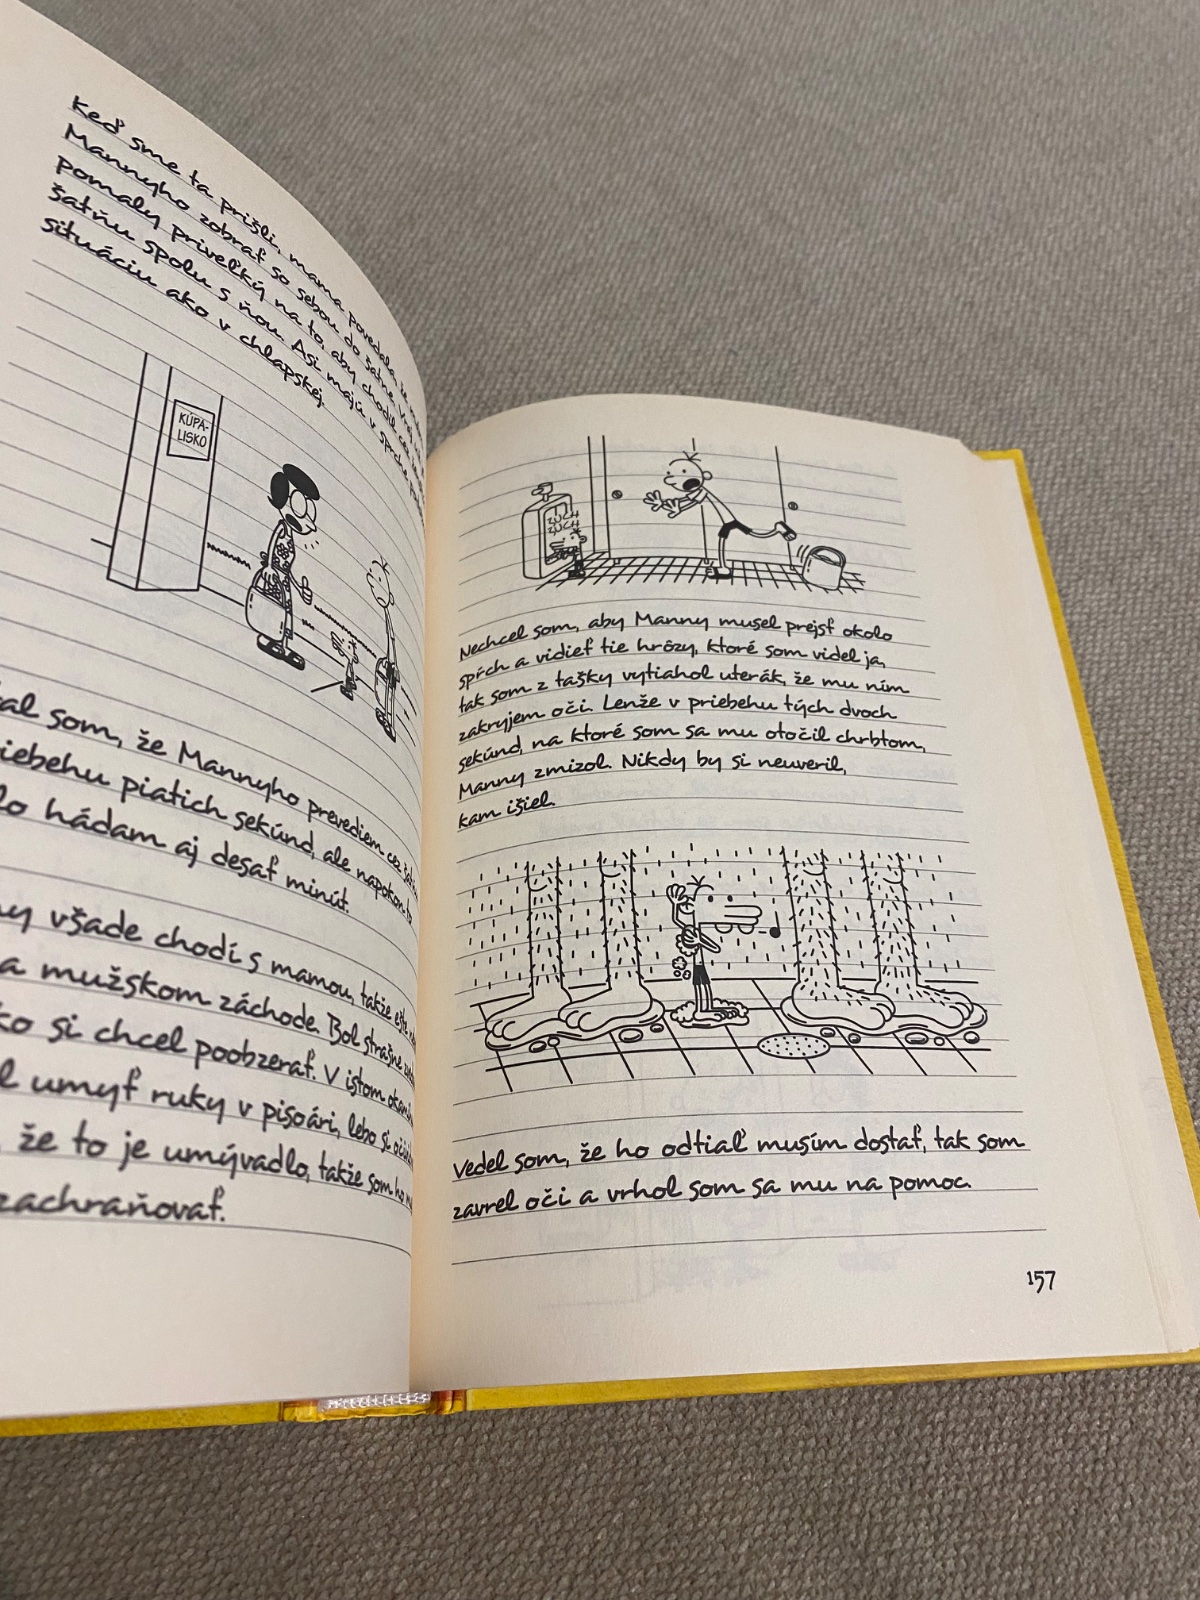 Keď sme ta prišli, mama povedala, že
Mannyho zobrať so sebou do šatne. Vraj
pomaly priveľký na to, aby chodil cez
šatňu spolu s ňou. Asi majú v sprche
situáciu ako v chlapskej.
KÚPA-
LISKO
som, že Mannyho prevediem cez
priebehu piatich sekúnd, ale napokon to
hádam aj desať minút.
všade chodí s mamou, takže ešte
mužskom záchode. Bol strašne
si chcel poobzerať. V istom
umyť ruky v pisoári, lebo si
že to je umývadlo, takže som ho
zachraňovať.
ŽUCH
ŽUCH
Nechcel som, aby Manny musel prejsť okolo
spŕch a vidieť tie hrôzy, ktoré som videl ja,
tak som z tašky vytiahol uterák, že mu ním
zakryjem oči. Lenže v priebehu tých dvoch
sekúnd, na ktoré som sa mu otočil chrbtom,
Manny zmizol. Nikdy by si neuveril,
kam išiel.
Vedel som, že ho odtiaľ musím dostať, tak som
zavrel oči a vrhol som sa mu na pomoc.
157